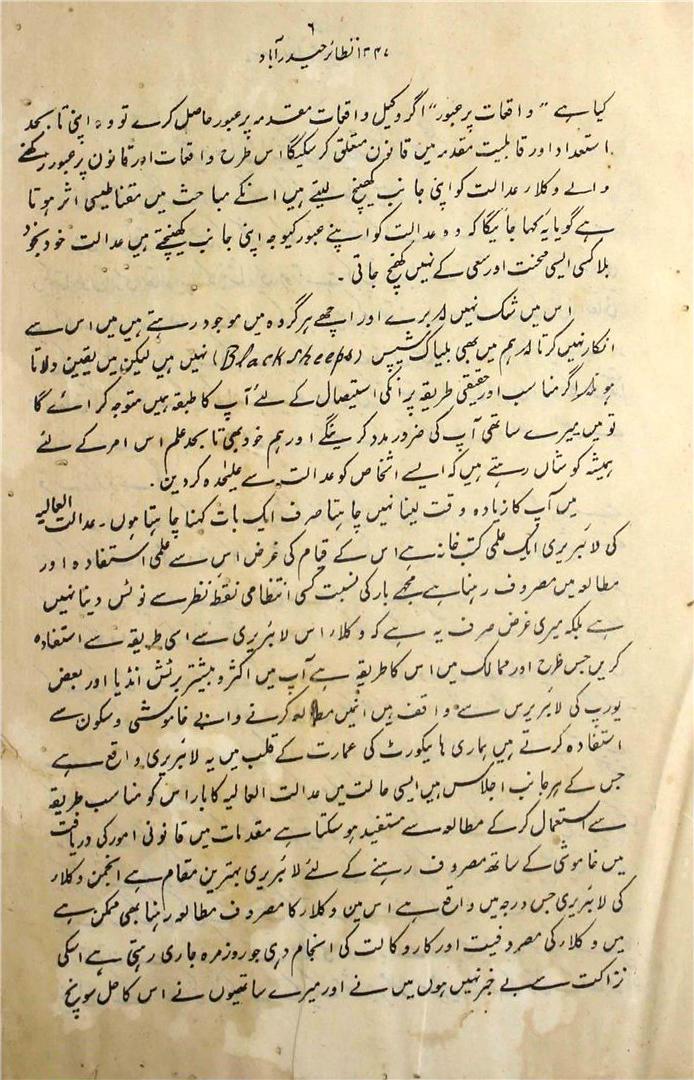 ۶
۱۳۴۷ نظائر حیدرآباد
کیا ہے "واقعات پر عبور" اگر وکیل واقعات مقدمہ پر عبور حاصل کرے تو وہ اپنی تا بحد
استعداد اور قابلیت مقدمہ میں قانون متعلق کرسکیگا اس طرح واقعات اور قانون پر عبور رکھنے
والے وکلاء عدالت کو اپنی جانب کھینچ لیتے ہیں انکے مباحث میں مقناطیسی اثر ہوتا
ہے گویا یہ کہا جائیگا کہ وہ عدالت کو اپنے عبور کیوجہ اپنی جانب کھینچتے ہیں عدالت خود بخود
بلا کسی ایسی محنت اور سعی کے نہیں کھنچ جاتی ۔
اس میں شک نہیں کہ برے اور اچھے ہر گروہ میں موجود رہتے ہیں میں اس سے
انکار نہیں کرتا کہ ہم میں بھی بلیاک شیپس (Black sheeps) نہیں ہیں لیکن میں یقین دلاتا
ہوں کہ اگر مناسب اور حقیقی طریقہ پر انکی استیصال کے لئے آپ کا طبقہ ہمیں متوجہ کرائے گا
تو میں میرے ساتھی آپ کی ضرور مدد کرینگے اور ہم خود بھی تا بحد علم اس امر کے لئے
ہمیشہ کوشاں رہتے ہیں کہ ایسے اشخاص کو عدالت سے علیٰحدہ کردیں ۔
میں آپ کا زیادہ وقت لینا نہیں چاہتا صرف ایک بات کہنا چاہتا ہوں ۔ عدالت العالیہ
کی لائبریری ایک علمی کتب خانہ ہے اس کے قیام کی غرض اس سے علمی استفادہ اور
مطالعہ میں مصروف رہنا ہے مجھے بار کی نسبت کسی انتظامی نقطۂ نظر سے نوٹس دینا نہیں
ہے بلکہ میری غرض صرف یہ ہے کہ وکلاء اس لائبریری سے اسی طریقہ سے استفادہ
کریں جس طرح اور ممالک میں اس کا طریقہ ہے آپ میں اکثر و بیشتر برٹش انڈیا اور بعض
یورپ کی لائبریریس سے واقف ہیں انمیں مطالعہ کرنے والے خاموشی و سکون سے
استفادہ کرتے ہیں ہماری ہائیکورٹ کی عمارت کے قلب میں یہ لائبریری واقع ہے
جس کے ہر جانب اجلاس ہیں ایسی حالت میں عدالت العالیہ کا بار اس کو مناسب طریقہ
سے استعمال کرکے مطالعہ سے مستفید ہوسکتا ہے مقدمات میں قانونی امور کی دریافت
میں خاموشی کے ساتھ مصروف رہنے کے لئے لائبریری بہترین مقام ہے انجمن وکلاء
کی لائبریری جس درجہ میں واقع ہے اس میں وکلاء کا مصروف مطالعہ رہنا بھی ممکن ہے
میں وکلاء کی مصروفیت اور کار وکالت کی انجام دہی جو روزمرہ جاری رہتی ہے اسکی
نزاکت سے بے خبر نہیں ہوں میں نے اور میرے ساتھیوں نے اس کا حل سونچ